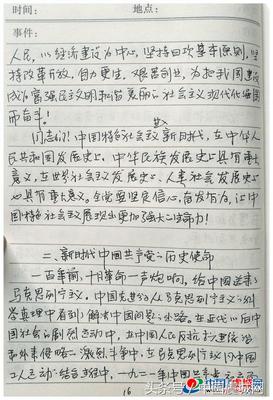 时间： 地点：
事件：
人民，以经济建设为中心，坚持四项基本原则，坚
持改革开放，自力更生，艰苦创业，为把我国建设
成为富强民主文明和谐美丽的社会主义现代化强国
而奋斗！
同志们！中国特色社会主义进入新时代，在中华人
民共和国发展史上、中华民族发展史上具有重大
意义，在世界社会主义发展史上、人类社会发展史上
也具有重大意义。全党要坚定信心、奋发有为，让中
国特色社会主义展现出更加强大的生命力！
二、新时代中国共产党的历史使命
一百年前，十月革命一声炮响，给中国送来了
马克思列宁主义。中国先进分子从马克思列宁主义的科
学真理中看到了解决中国问题的出路。在近代以后中
国社会的剧烈运动中，在中国人民反抗封建统治
和外来侵略的激烈斗争中，在马克思列宁主义同中国
工人运动的结合过程中，一九二一年中国共产党
16